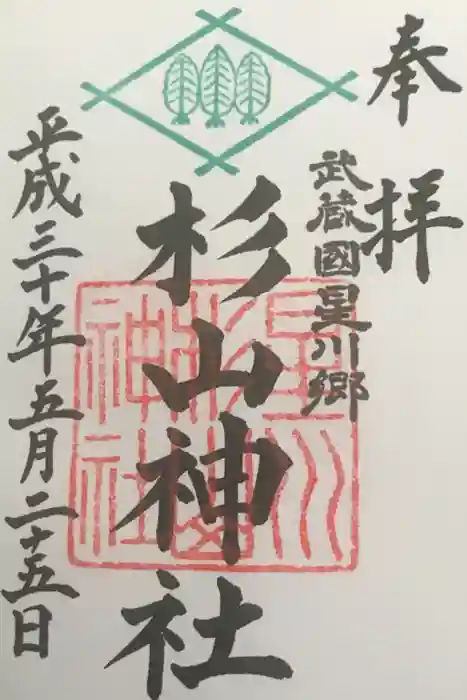 奉拝
武蔵國星川郷
杉山神社
平成三十年五月二十五日
星川
杉山
神社